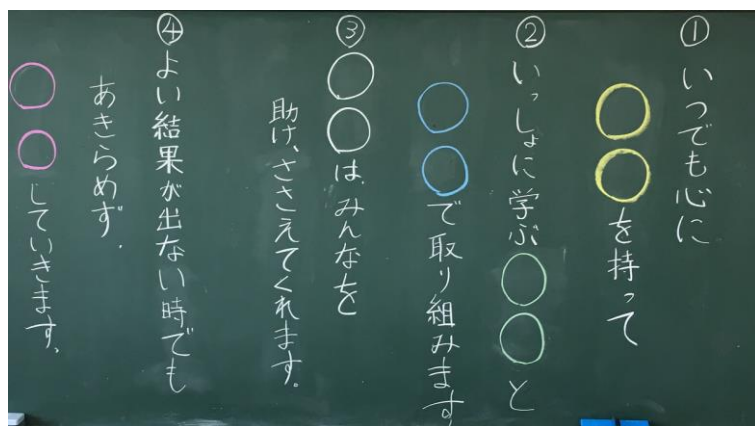 ① いつでも心に
○○を持って
② いっしょに学ぶ○○と
○○で取り組みます
③ ○○は、みんなを
助け、ささえてくれます。
④ よい結果が出ない時でも
あきらめず、
○○していきます。